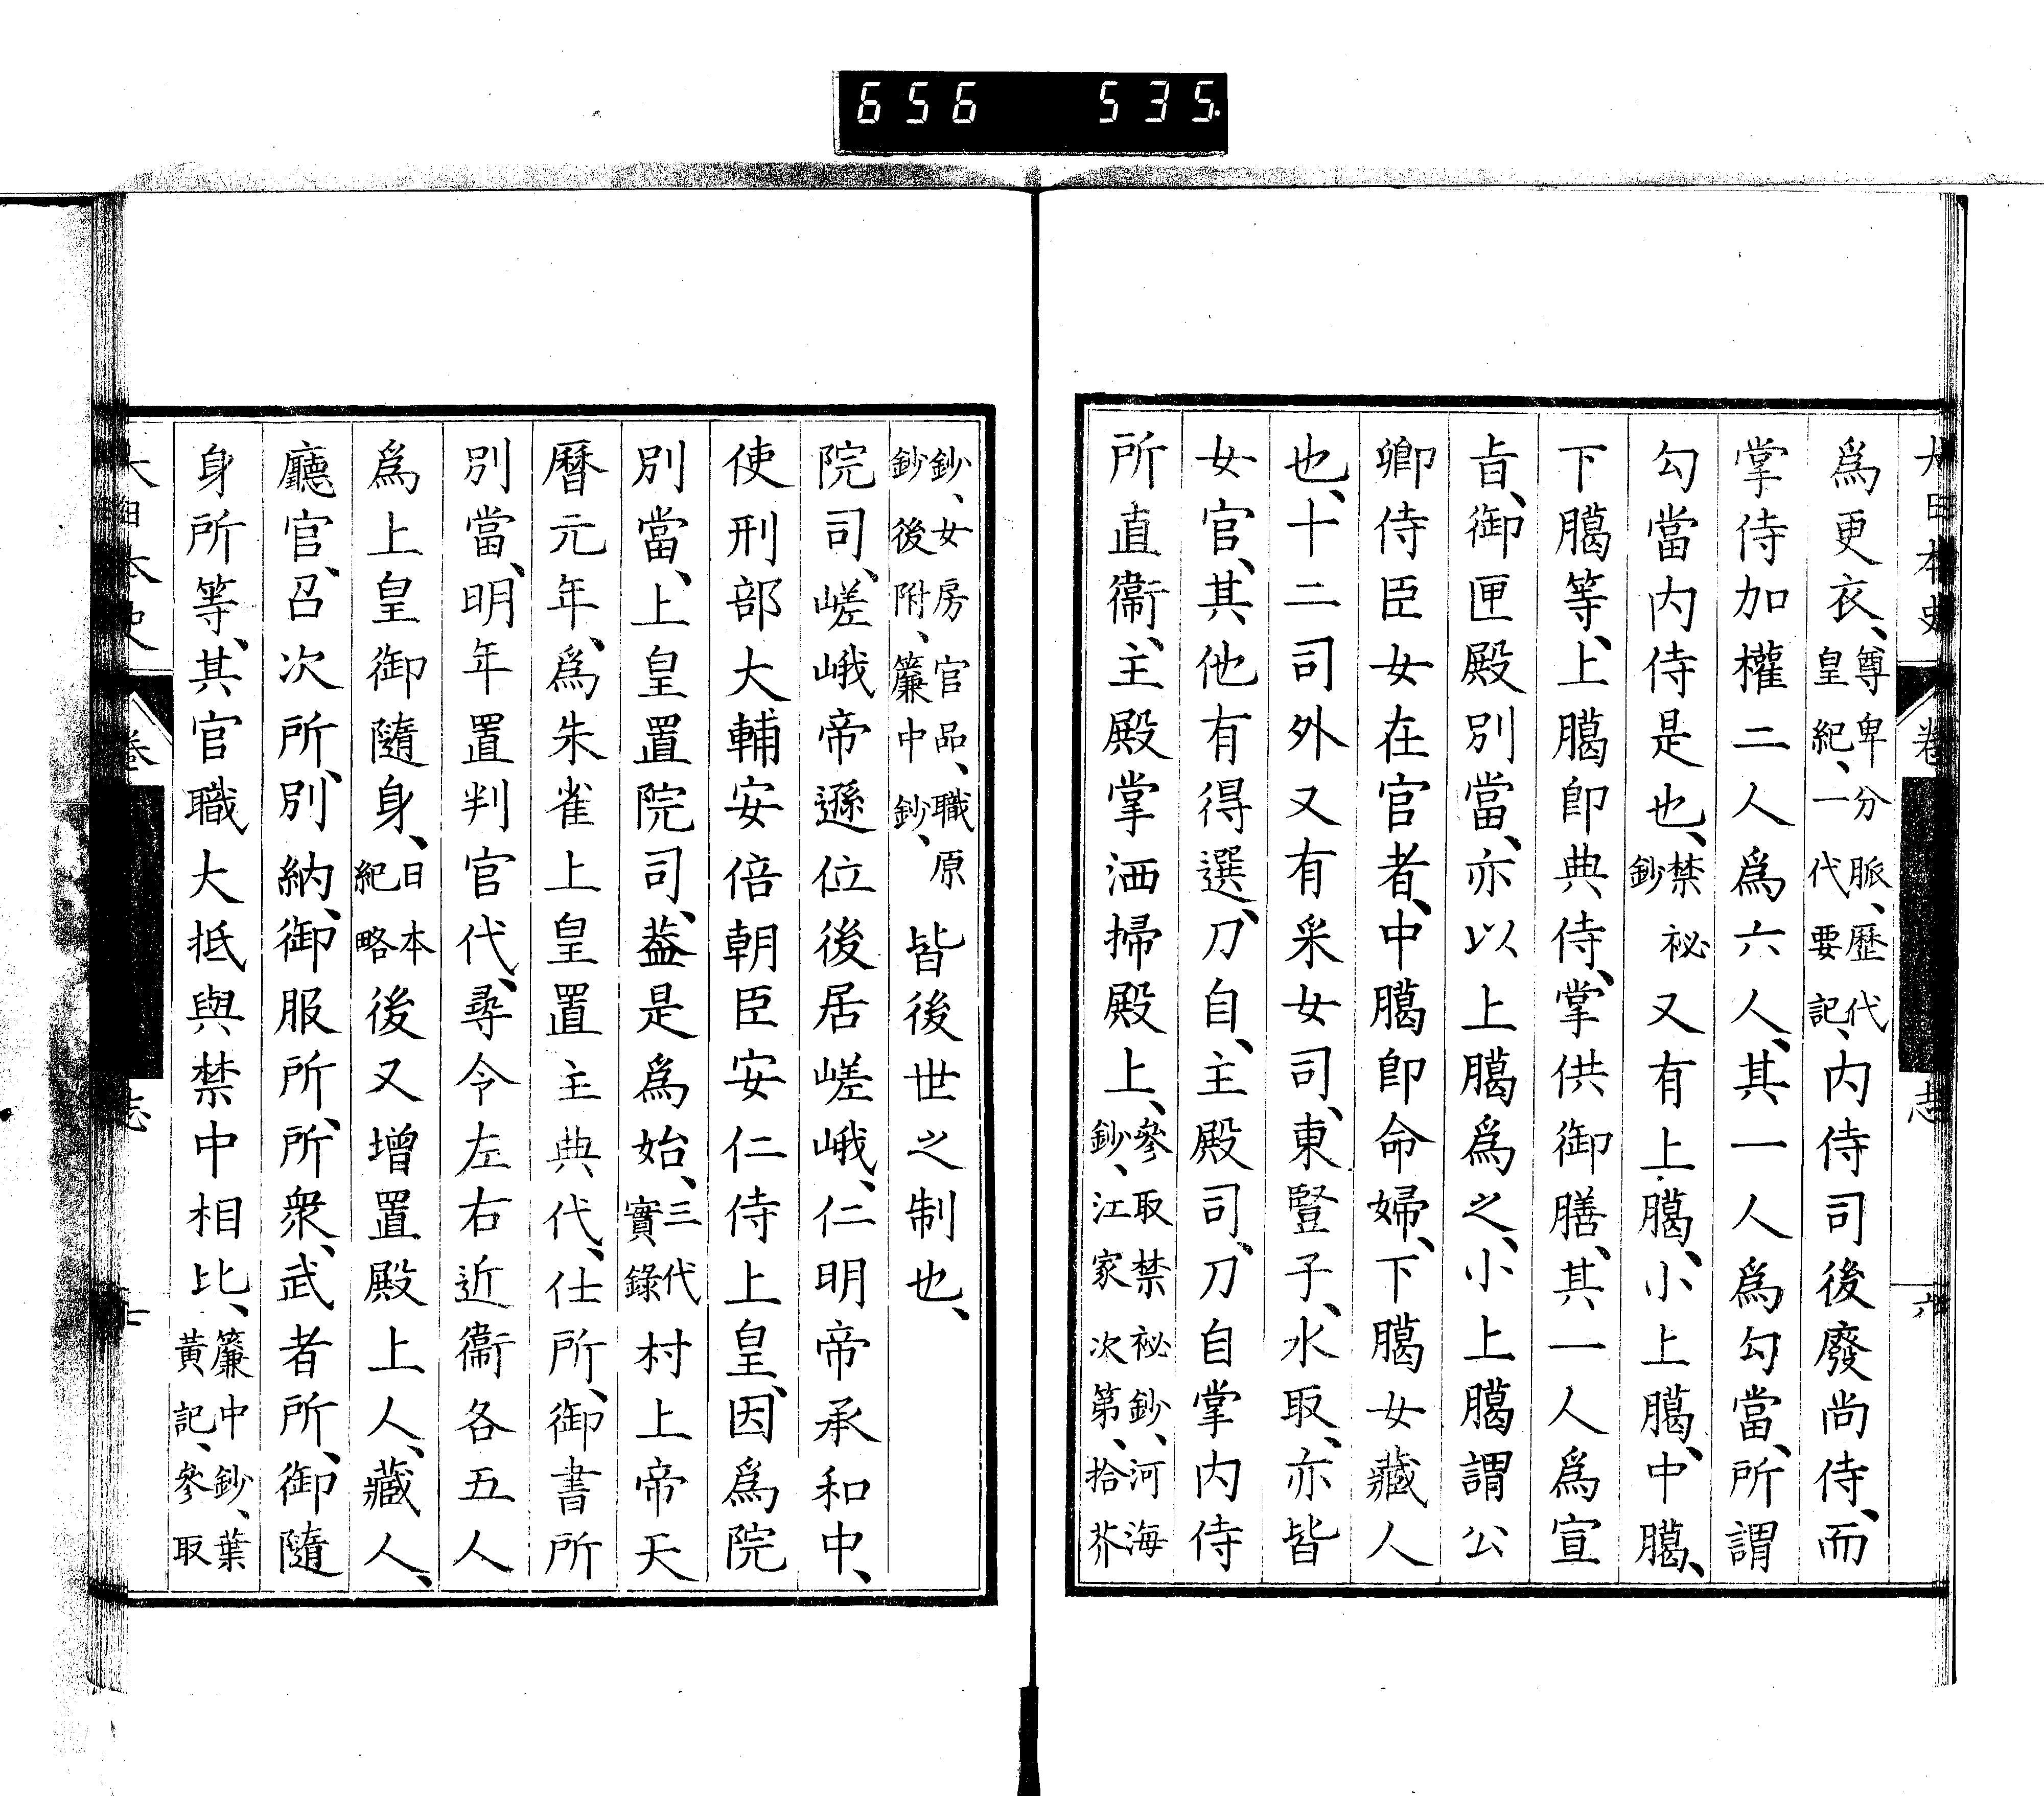 656 535
大日本史 卷 志 六
爲更衣、尊卑分脈、歷代皇紀、一代要記、內侍司後廢尚侍、而
掌侍加權二人爲六人、其一人爲勾當、所謂
勾當內侍是也、禁祕鈔又有上﨟、小上﨟、中﨟、
下﨟等、上﨟卽典侍、掌供御膳、其一人爲宣
旨、御匣殿別當、亦以上﨟爲之、小上﨟謂公
卿侍臣女在官者、中﨟卽命婦、下﨟女藏人
也、十二司外又有采女司、東豎子、水取、亦皆
女官、其他有得選、刀自、主殿司、刀自掌內侍
所直衞、主殿掌洒掃殿上、參取禁祕鈔、河海鈔、江家次第、拾芥
鈔、女房官品、職原鈔後附、簾中鈔、皆後世之制也、
院司、嵯峨帝遜位後居嵯峨、仁明帝承和中、
使刑部大輔安倍朝臣安仁侍上皇、因爲院
別當、上皇置院司、葢是爲始、三代實錄村上帝天
曆元年、爲朱雀上皇置主典代、仕所、御書所
別當、明年置判官代、尋令左右近衞各五人
爲上皇御隨身、日本紀略後又增置殿上人、藏人、
廳官、召次所、別納、御服所、所衆、武者所、御隨
身所等、其官職大抵與禁中相比、簾中鈔、葉黃記、參取
大日本史 卷 志 七